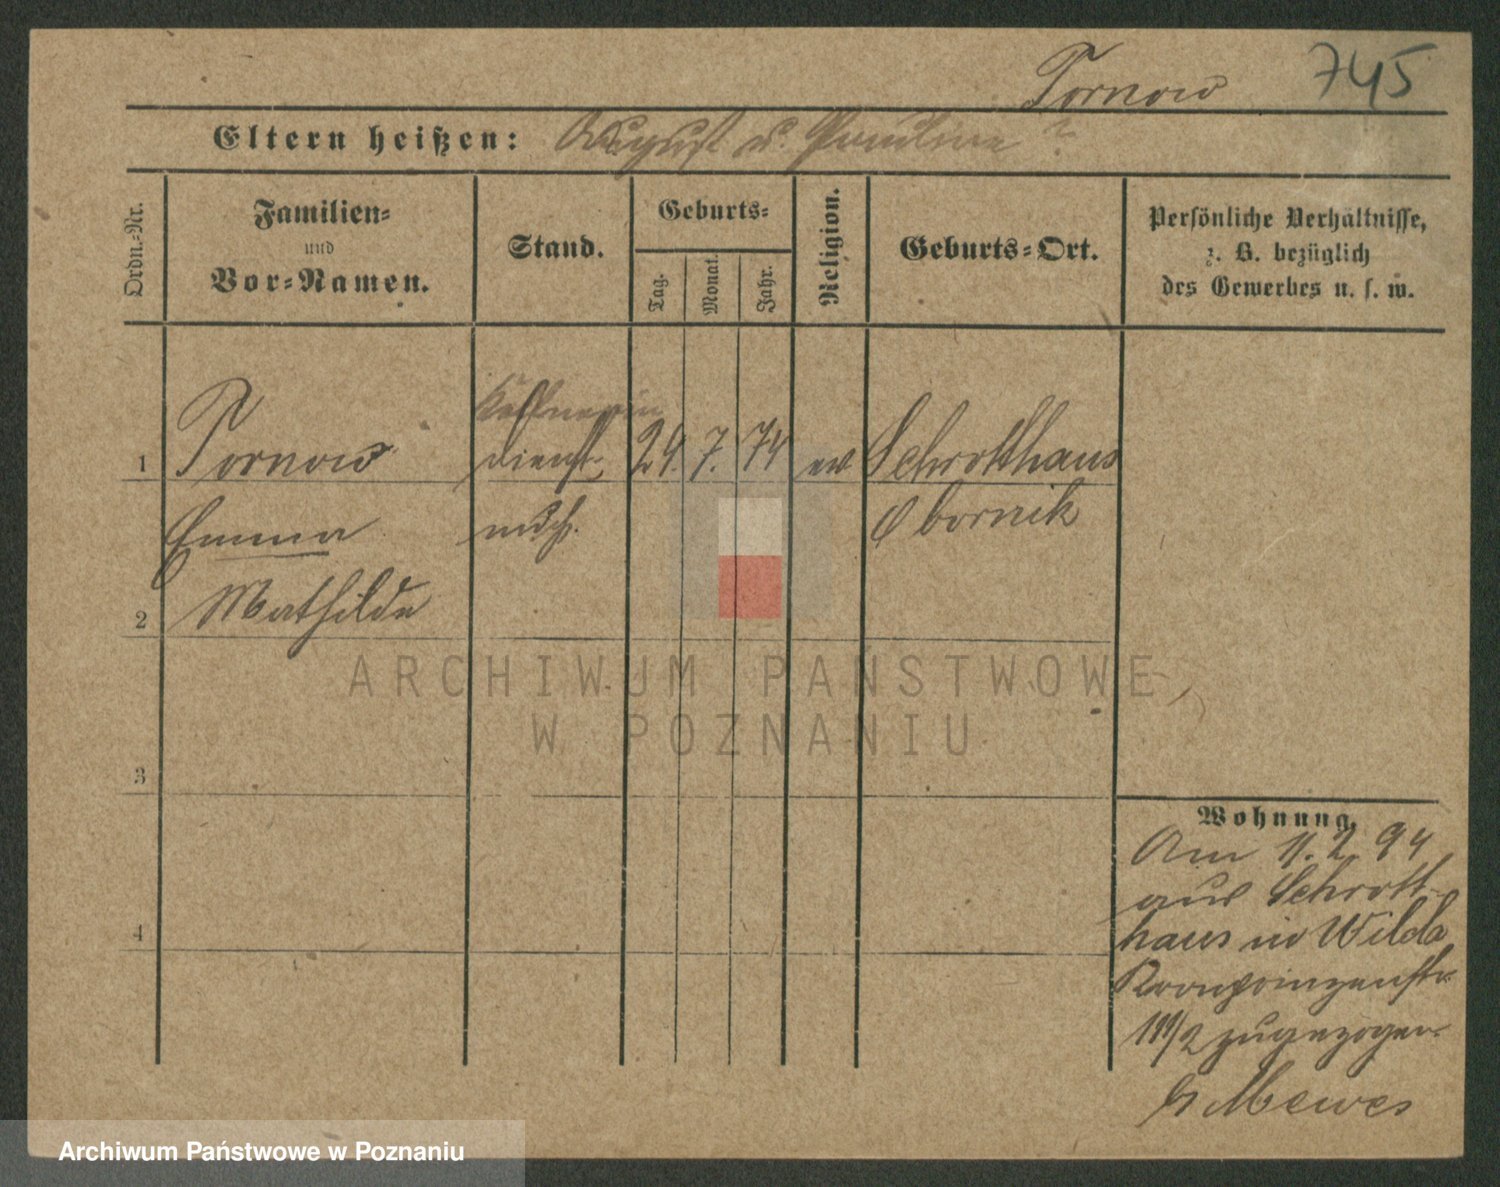 Tornow 745
Eltern heißen: August u. Pauline ?
Ordn.-Nr.
Familien-
und
Vor-Namen.
Stand.
Geburts-
Tag.
Monat.
Jahr.
Religion.
Geburts-Ort.
Persönliche Verhältnisse,
z. B. bezüglich
des Gewerbes u. s. w.
Kellnerin
1 Tornow dienst- 24. 7. 74 ev Schrotthaus
Emma mdch. Obornik
2 Mathilde
3
4
Wohnung.
Am 11.2.94
aus Schrott-
haus in Wilda
Kronprinzenstr.
111/2 zugezogen.
b Mewes
ARCHIWUM PAŃSTWOWE
W POZNANIU
Archiwum Państwowe w Poznaniu